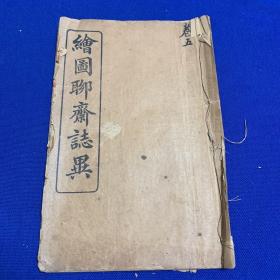 繪圖聊齋誌異
卷五